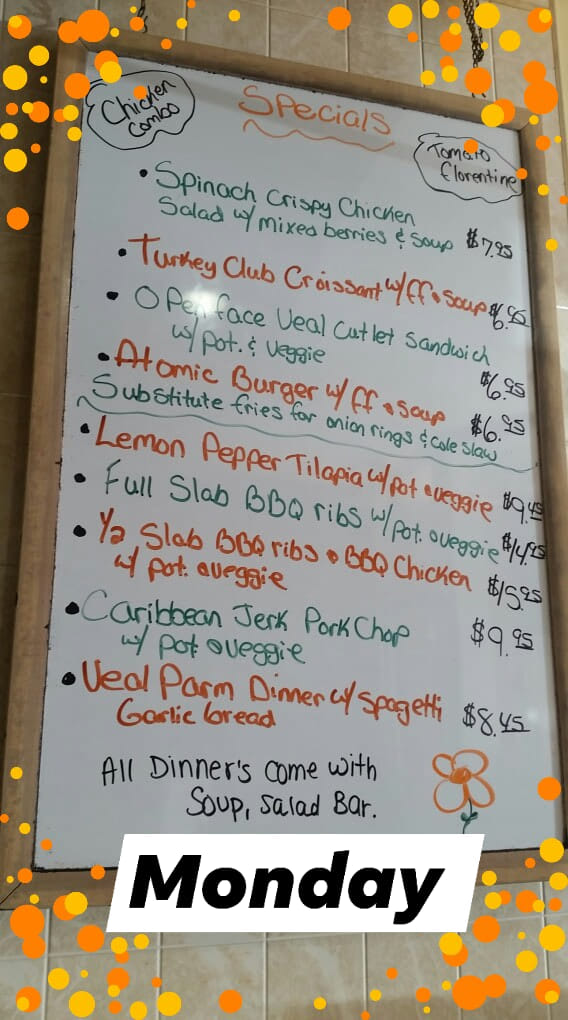 Chicken
Combo
Specials
Tomato
Florentine
• Spinach Crispy Chicken
Salad w/ mixed berries & soup $7.95
• Turkey Club Croissant w/ff & soup $6.95
• Open face Veal Cutlet Sandwich
w/ pot. & veggie $6.95
• Atomic Burger w/ ff & soup $6.95
Substitute fries for onion rings & cole slaw
• Lemon Pepper Tilapia w/ pot & veggie $9.45
• Full Slab BBQ ribs w/ pot. & veggie $14.95
• 1/2 Slab BBQ ribs & BBQ Chicken
w/ pot. & veggie $15.95
• Caribbean Jerk Pork Chop
w/ pot & veggie $9.95
• Veal Parm Dinner w/ spagetti
Garlic bread $8.45
All Dinner's come with
Soup, Salad Bar.
Monday